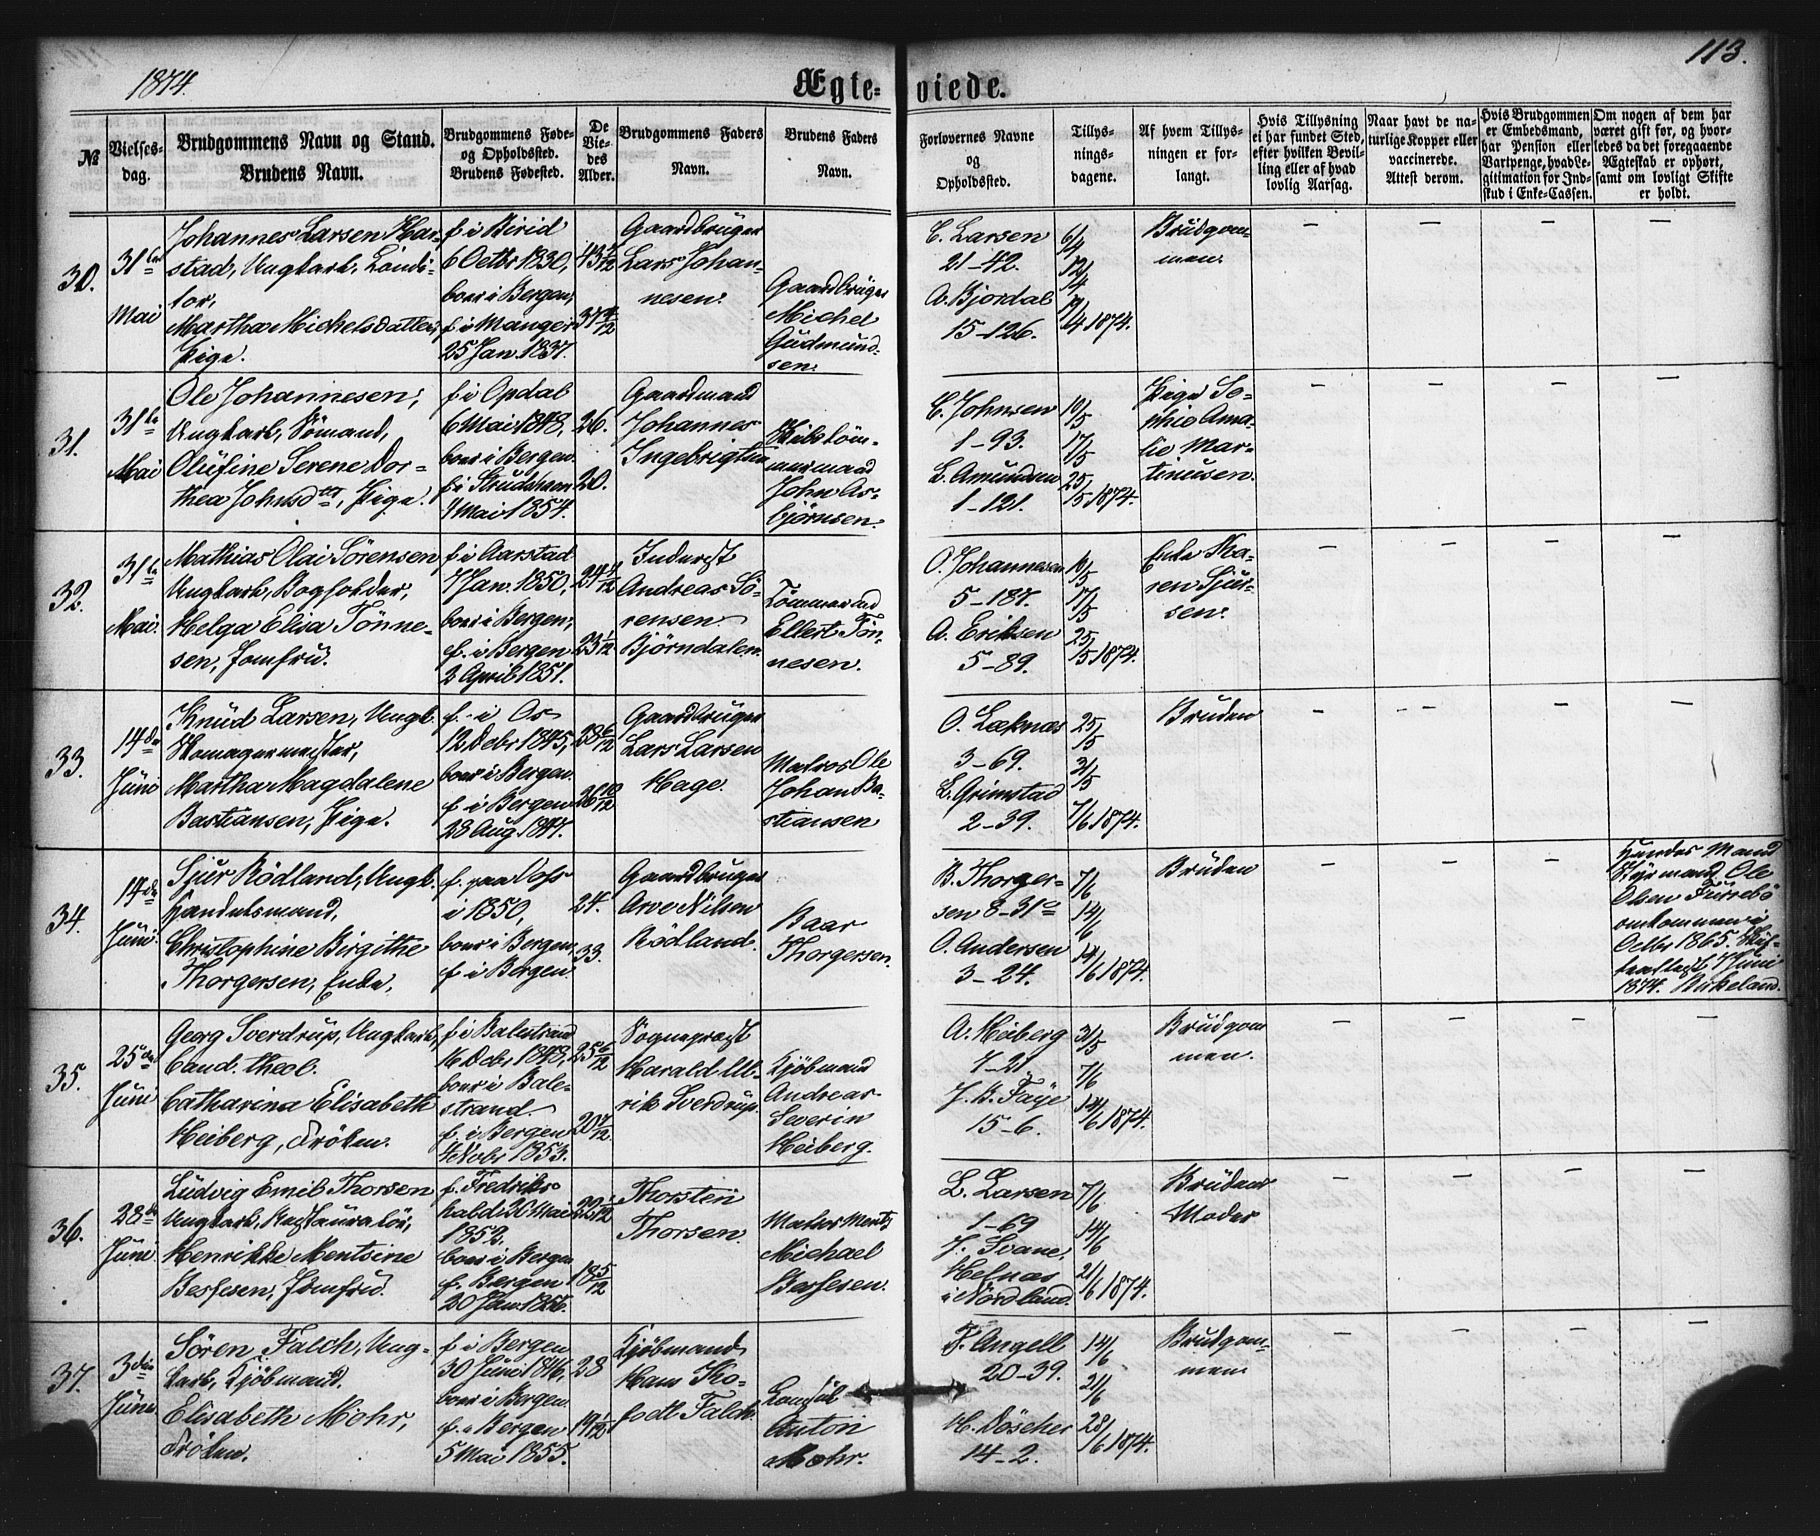 1874.
Ægte-viede.
113.
№
Vielses-
dag.
Brudgommens Navn og Stand.
Brudens Navn.
Brudgommens Føde-
og Opholdssted.
Brudens Fødested.
De
Vie-
des
Alder.
Brudgommens Faders
Navn.
Brudens Faders
Navn.
Forlovernes Navne
og
Opholdssted.
Tillys-
nings-
dagene.
Af hvem Tillys-
ningen er for-
langt.
Hvis Tillysning
ei har fundet Sted,
efter hvilken Bevil-
ling eller af hvad
lovlig Aarsag.
Naar havt de na-
turlige Kopper eller
vaccinerede.
Attest derom.
Hvis Brudgommen
er Embedsmand,
har Pension eller
Vartpenge, hvad Le-
gitimation for Ind-
skud i Enke-Cassen.
Om nogen af dem har
været gift for, og hvor-
ledes da det foregaaende
Ægteskab er ophørt,
samt om lovligt Skifte
er holdt.
30.
31te
Mai
Johannes Larsen Har-
stad, Ungkarl, Condi-
tor,
Martha Michelsdatter,
Pige.
f. i Birid
6 Octbr 1830,
boer i Bergen,
f. i Manger
25 Jan. 1837.
43 7/12
37 4/12
Gaardbruger
Lars Johan-
nesen.
Gaardbruger
Michel
Gudmund-
sen.
C. Larsen
21-42.
A. Bjordal
15-126.
6/4
12/4
19/4 1874.
Brudgom-
men.
31.
31te
Mai
Ole Johannesen,
Ungkarl, Sømand,
Olufine Serene Dor-
thea Johnsdtr, Pige.
f. i Opdal
6 Mai 1848,
boer i Bergen.
f. i Skudshavn
4 Mai 1854.
26.
20.
Gaardmand
Johannes
Ingebrigtsen
Skibstøm-
mermand
John As-
bjørnsen.
C. Johnsen
1-93.
L. Amundsen
1-121.
10/5
17/5
25/5 1874.
Pige So-
phie Ama-
lie Mar-
tinusen.
32.
31te
Mai.
Mathias Olai Sørensen
Ungkarl, Bogholder,
Helga Elisa Tønne-
sen, Jomfru.
f. i Aarstad
7 Jan. 1850,
boer i Bergen,
f. i Bergen
2 April 1851.
24 4/12
23 1/12
Inderst
Andreas Sö-
rensen
Björndalen.
Tømmermand
Ellert Tøn-
nesen.
O. Johannesen
5-187.
A. Eriksen
5-89.
10/5
17/5
25/5 1874.
Enke Ka-
ren Sjur-
sen.
33.
14de
Juni
Knud Larsen, Ungk.
Skomagermester,
Martha Magdalene
Bastiansen, Pige.
f. i Os
12 Debr 1845,
boer i Bergen.
f. i Bergen
28 Aug. 1847.
28 6/12
26 10/12
Gaardbruger
Lars Larsen
Hage.
Matros Ole
Johan Ba-
stiansen
O. Leknas
3-69.
L. Grimstad
2-39.
25/5
31/5
7/6 1874.
Bruden
34.
14de
Juni.
Sjur Rödland, Ungk.
Handelsmand,
Christophine Birgithe
Thorgersen, Enke,
f. paa Voss
i 1850,
boer i Bergen,
f. i Bergen
24.
33.
Gaardbruger
Arve Nilsen
Rödland.
Baar
Thorgersen.
B. Thorger-
sen 8-31c
O. Andersen
3-24.
7/6
14/6
14/6 1874.
Bruden
Hendes Mand
Styrmand Ole
Olsen Furrebö
omkommen i
Octbr 1865. Skif-
teattest 7 Juni
1874. Kirkeland.
35.
25de
Juni
Georg Sverdrup, Ungkarl,
Cand. theol.
Catharina Elisabeth
Heiberg, Frøken.
f. i Balestrand
16 Debr 1848,
boer i Bale-
strand.
f. i Bergen
4 Novbr 1853.
25 6/12
20 7/12
Sogneprest
Harald Ul-
rik Sverdrup.
Kjöbmand
Andreas
Severin
Heiberg.
A. Heiberg
7-21.
J. B. Faye
15-6.
31/5
7/6
14/6 1874.
Brudgom
men.
36.
28de
Juni
Ludvig Emil Thorsen
Ungkarl, Restauratör,
Henrikke Mentsine
Besfesen, Jomfru.
f. Fredriks-
hald 26 Mai
1852.
boer i Bergen
f. Bergen
20 Jan. 1856.
22 1/12
18 5/12
Thorsten
Thorsen.
Matros Mentz
Michael
Besfesen.
L. Larsen
1-69
J. Svane,
Helnæs
i Nordland.
7/6
14/6
21/6 1874.
Brudens
Moder
37.
3die
Sören Falch, Ung-
karl, Kjöbmand.
Elisabeth Mohr,
Frøken.
f. i Bergen
30 Juni 1846,
boer i Bergen.
f. i Bergen
5 Mai 1855.
28
19 1/12
Kjöbmand
Hans Tho-
fodt Falch.
Consul
Anton
Mohr.
F. Angell
20-39.
H. Döscher
14-2.
14/6
21/6
28/6 1874.
Brudgom-
men